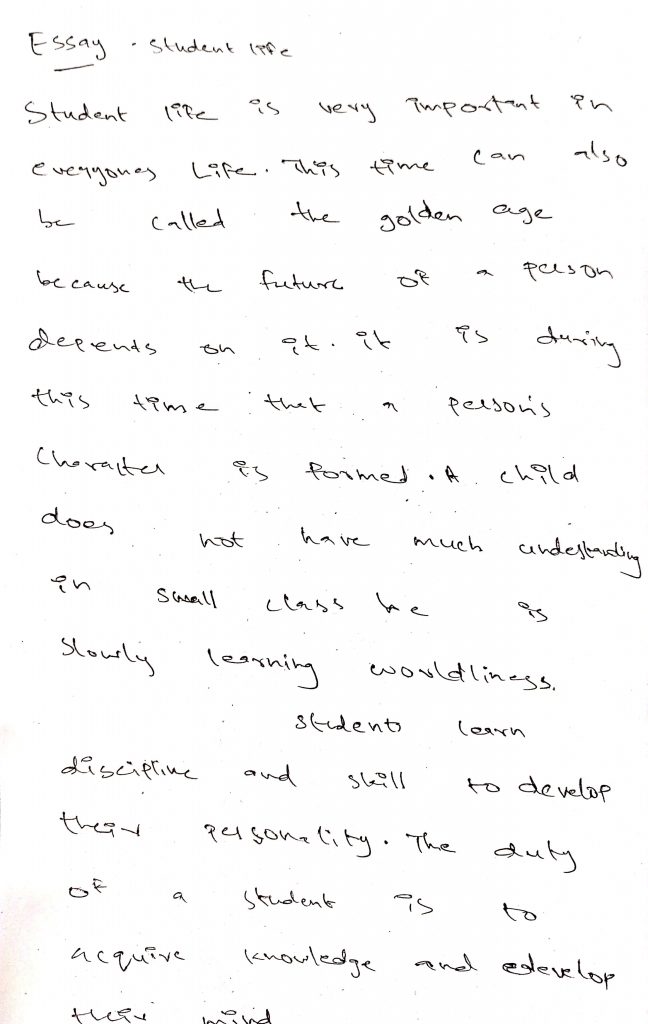 Essay . Student life
Student life is very important in
everyones Life. This time can also
be called the golden age
because the future of a person
depends on it. it is during
this time that a person's
Character is formed. A child
does not have much understanding
in small class he is
slowly learning worldliness.
students learn
discipline and skill to develop
their personality. The duty
of a student is to
acquire knowledge and develop
their mind